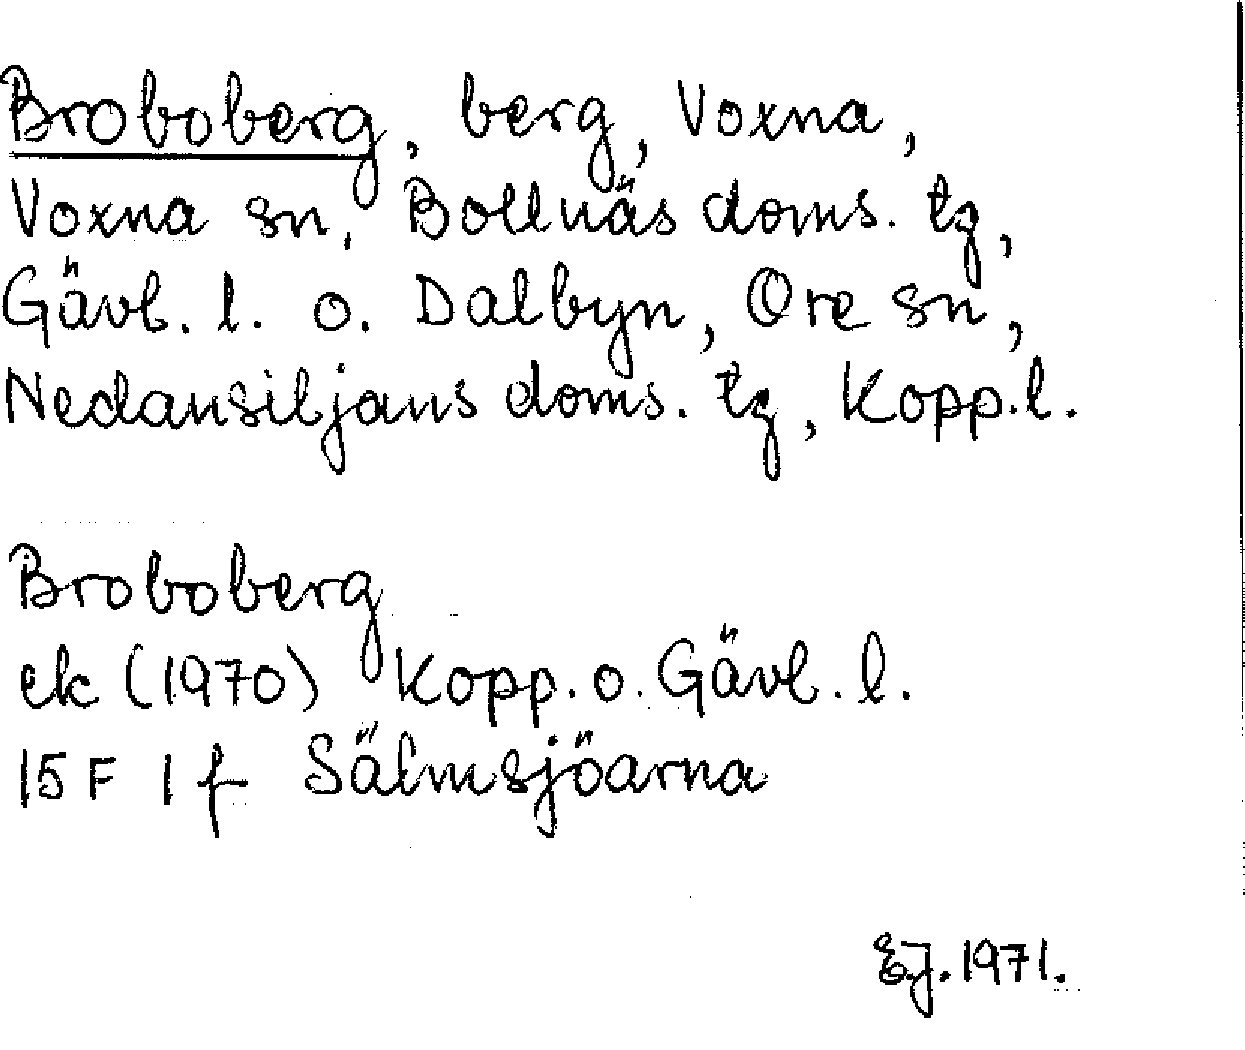 Broboberg, berg, Voxna,
Voxna sn, Bollnäs doms. tg,
Gävl. l. o. Dalbyn, Ore sn,
Nedansiljans doms. tg, Kopp. l.
Broboberg
ek (1970) Kopp. o. Gävl. l.
15 F 1 f Sälmsjöarna
EJ. 1971.